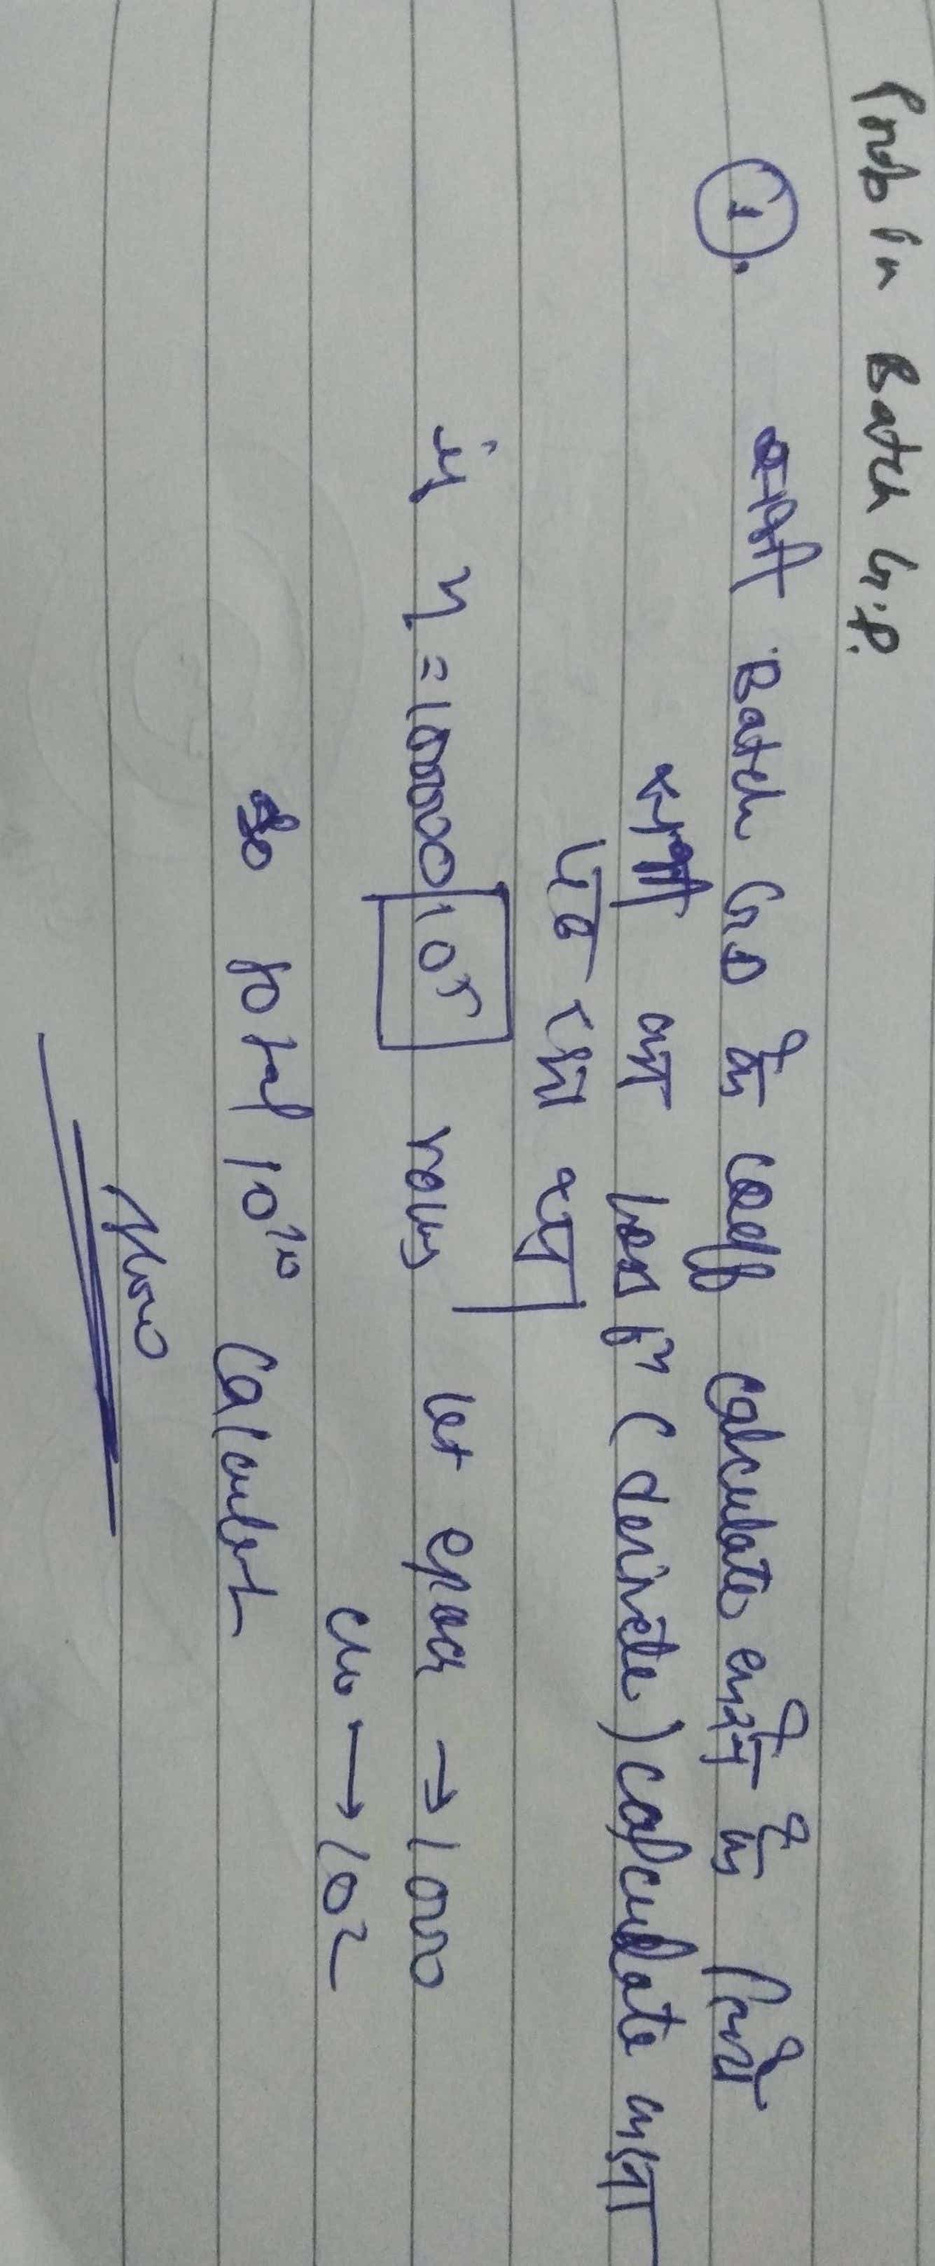 Prob in Batch G.D.
①. Batch GD के coeff calculate करने के लिये
का loss fⁿ (derivate) calculate करना
पड़ रहा था
if n = 100000 10⁵ rows let epoch → 1000
→ 10²
so total 10¹⁰ Calculat
slow